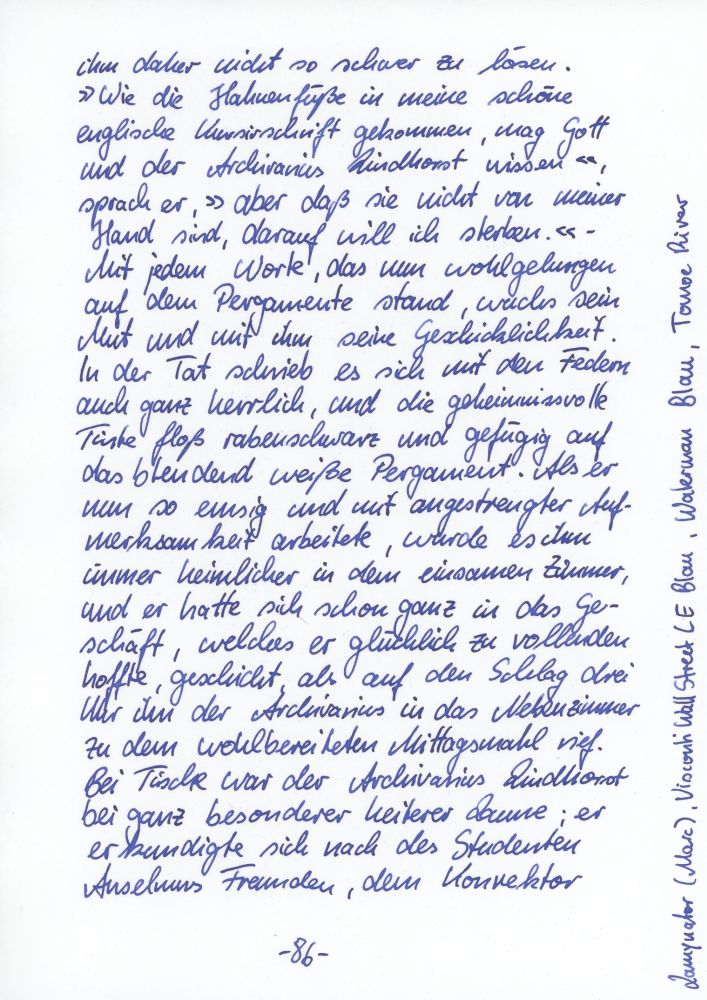 ihm daher nicht so schwer zu lösen.
»Wie die Hahnenfüße in meine schöne
englische Kursivschrift gekommen, mag Gott
und der Archivarius Lindhorst wissen«,
sprach er, »aber daß sie nicht von meiner
Hand sind, darauf will ich sterben.« -
Mit jedem Worte, das nun wohlgelungen
auf dem Pergamente stand, wuchs sein
Mut und mit ihm seine Geschicklichkeit.
In der Tat schrieb es sich mit den Federn
auch ganz herrlich, und die geheimnisvolle
Tinte floß rabenschwarz und gefügig auf
das blendend weiße Pergament. Als er
nun so emsig und mit angestrengter Auf-
merksamkeit arbeitete, wurde es ihm
immer heimlicher in dem einsamen Zimmer,
und er hatte sich schon ganz in das Ge-
schäft, welches er glücklich zu vollenden
hoffte, geschickt, als auf den Schlag drei
Uhr ihn der Archivarius in das Nebenzimmer
zu dem wohlbereiteten Mittagsmahl rief.
Bei Tische war der Archivarius Lindhorst
bei ganz besonderer heiterer Laune; er
erkundigte sich nach des Studenten
Anselmus Freunden, dem Konrektor
-86-
(Marc), Visconti Wall Street LE Blau, Waterman Blau, Tomoe River